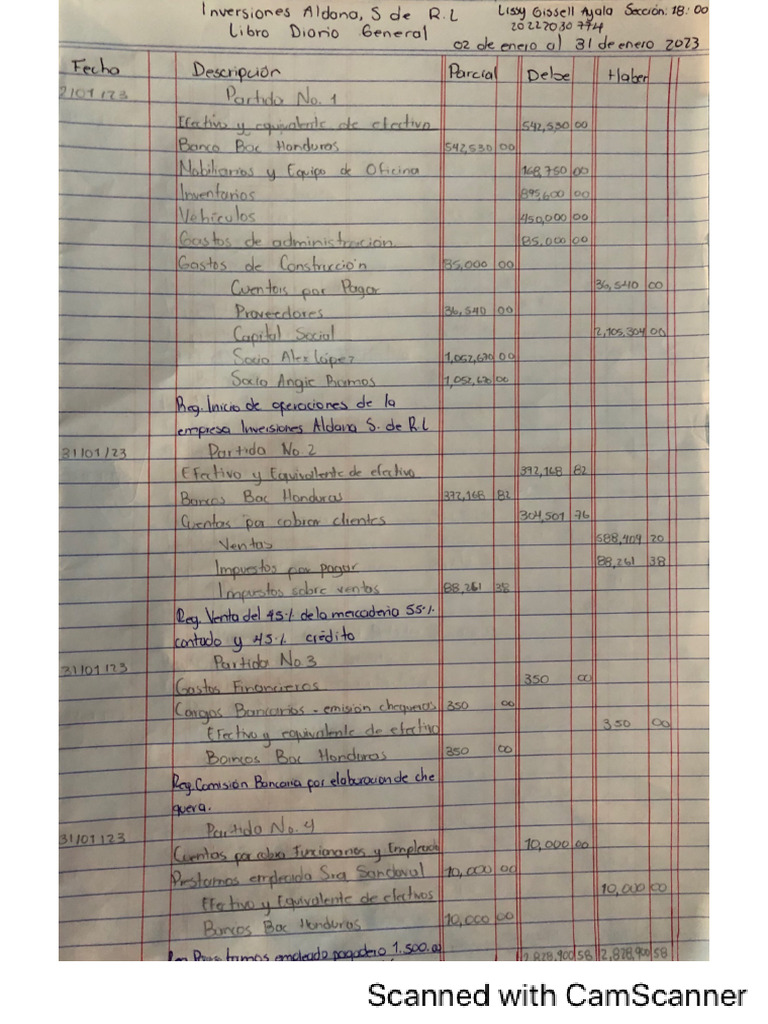 Inversiones Aldana, S de R.L Lissy Gissell Ayala Sección: 18:00
20227030774
Libro Diario General 02 de enero al 31 de enero 2023
Fecha Descripción Parcial Debe Haber
2/01/23 Partida No. 1
Efectivo y equivalente de efectivo 542,530 00
Banco Bac Honduras 542,530 00
Mobiliarios y Equipo de Oficina 168,750 00
Inventarios 895,600 00
Vehículos 450,000 00
Gastos de administración 85,000 00
Gastos de Construcción 85,000 00
Cuentas por Pagar 36,540 00
Proveedores 36,540 00
Capital Social 2,105,304 00
Socio Alex López 1,052,670 00
Socio Angie Ramos 1,052,670 00
Reg. Inicio de operaciones de la
empresa Inversiones Aldana S. de R.L
31/01/23 Partida No. 2
Efectivo y Equivalente de efectivo 372,168 82
Bancos Bac Honduras 372,168 82
Cuentas por cobrar clientes 304,501 76
Ventas 588,409 20
Impuestos por pagar 88,261 38
Impuestos sobre ventas 88,261 38
Reg. Venta del 45% de la mercaderia 55%
contado y 45% crédito
31/01/23 Partida No 3
Gastos Financieros 350 00
Cargos Bancarios - emisión chequeras 350 00
Efectivo y equivalente de efectivo 350 00
Bancos Bac Honduras 350 00
Reg. Comisión Bancaria por elaboracion de che
quera.
31/01/23 Partida No. 4
Cuentas por cobrar Funcionarios y Emplead 10,000 00
Prestamos empleada Sra Sandoval 10,000 00
Efectivo y Equivalente de efectivos 10,000 00
Bancos Bac Honduras 10,000 00
empleado pagadero 1.500.00 2,828,900 58 2,828,900 58
Scanned with CamScanner